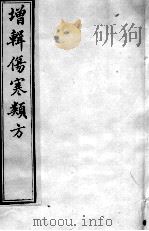 增輯傷寒類方
mtoou.info